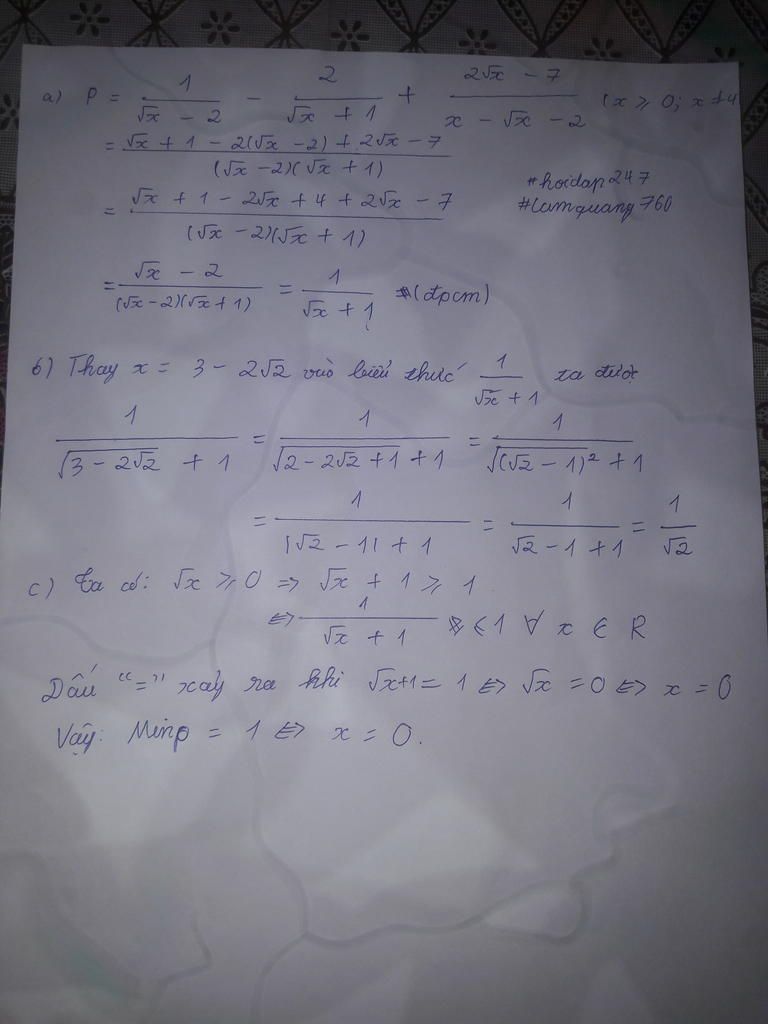 a) P = 1/(√x - 2) - 2/(√x + 1) + (2√x - 7)/(x - √x - 2) (x ≥ 0; x ≠ 4
= (√x + 1 - 2(√x - 2) + 2√x - 7)/((√x - 2)(√x + 1))
#hoidap247
#lamquang760
= (√x + 1 - 2√x + 4 + 2√x - 7)/((√x - 2)(√x + 1))
= (√x - 2)/((√x - 2)(√x + 1)) = 1/(√x + 1) (đpcm)
b) Thay x = 3 - 2√2 vào biểu thức 1/(√x + 1) ta được
1/(√(3 - 2√2) + 1) = 1/(√(2 - 2√2 + 1) + 1) = 1/(√((√2 - 1)²) + 1)
= 1/(|√2 - 1| + 1) = 1/(√2 - 1 + 1) = 1/√2
c) Ta có: √x ≥ 0 => √x + 1 ≥ 1
<=> 1/(√x + 1) ≤ 1 ∀ x ∈ R
Dấu "=" xảy ra khi √x+1 = 1 <=> √x = 0 <=> x = 0
Vậy: Minp = 1 <=> x = 0.